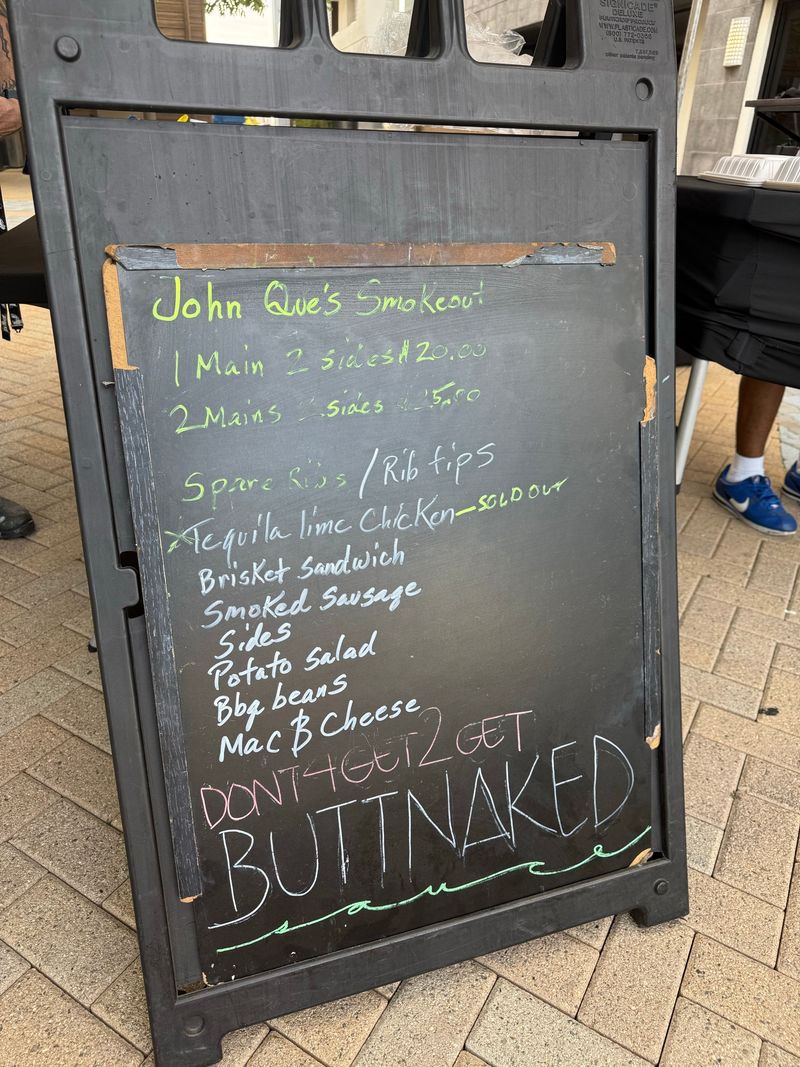 SIGNICADE
DELUXE
John Que's Smokeout
1 Main 2 sides $20.00
2 Mains 2 sides 25.00
Spare Ribs / Rib tips
Tequila lime Chicken - SOLD OUT
Brisket sandwich
Smoked Sausage
Sides
Potato Salad
Bbq beans
Mac & Cheese
DONT 4GET 2 GET
BUTTNAKED
sauce